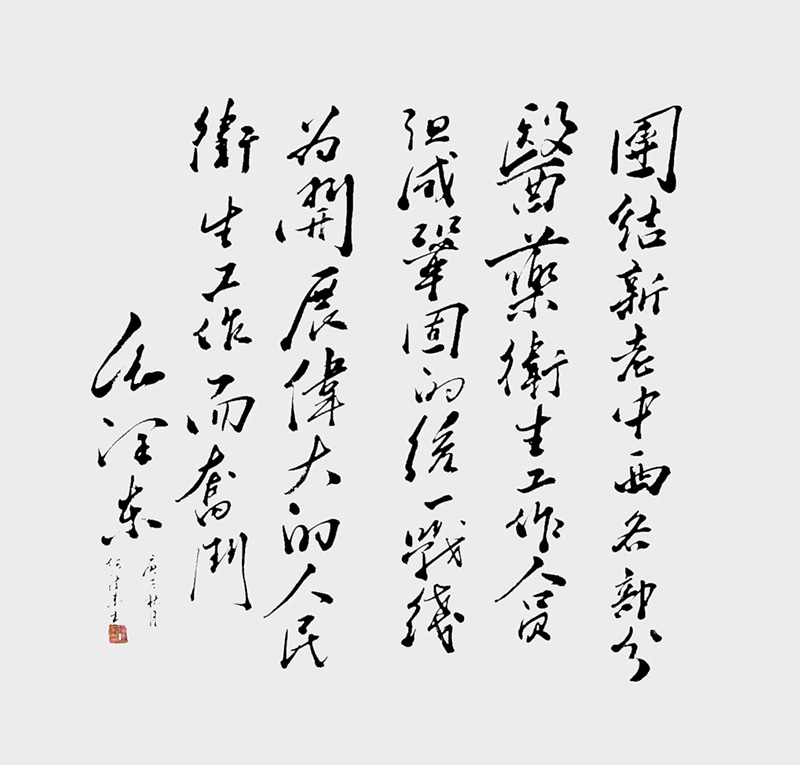 團結新老中西各部分
醫藥衛生工作人員
组成鞏固的统一戰綫
为開展偉大的人民
衛生工作而奮鬥
毛澤东